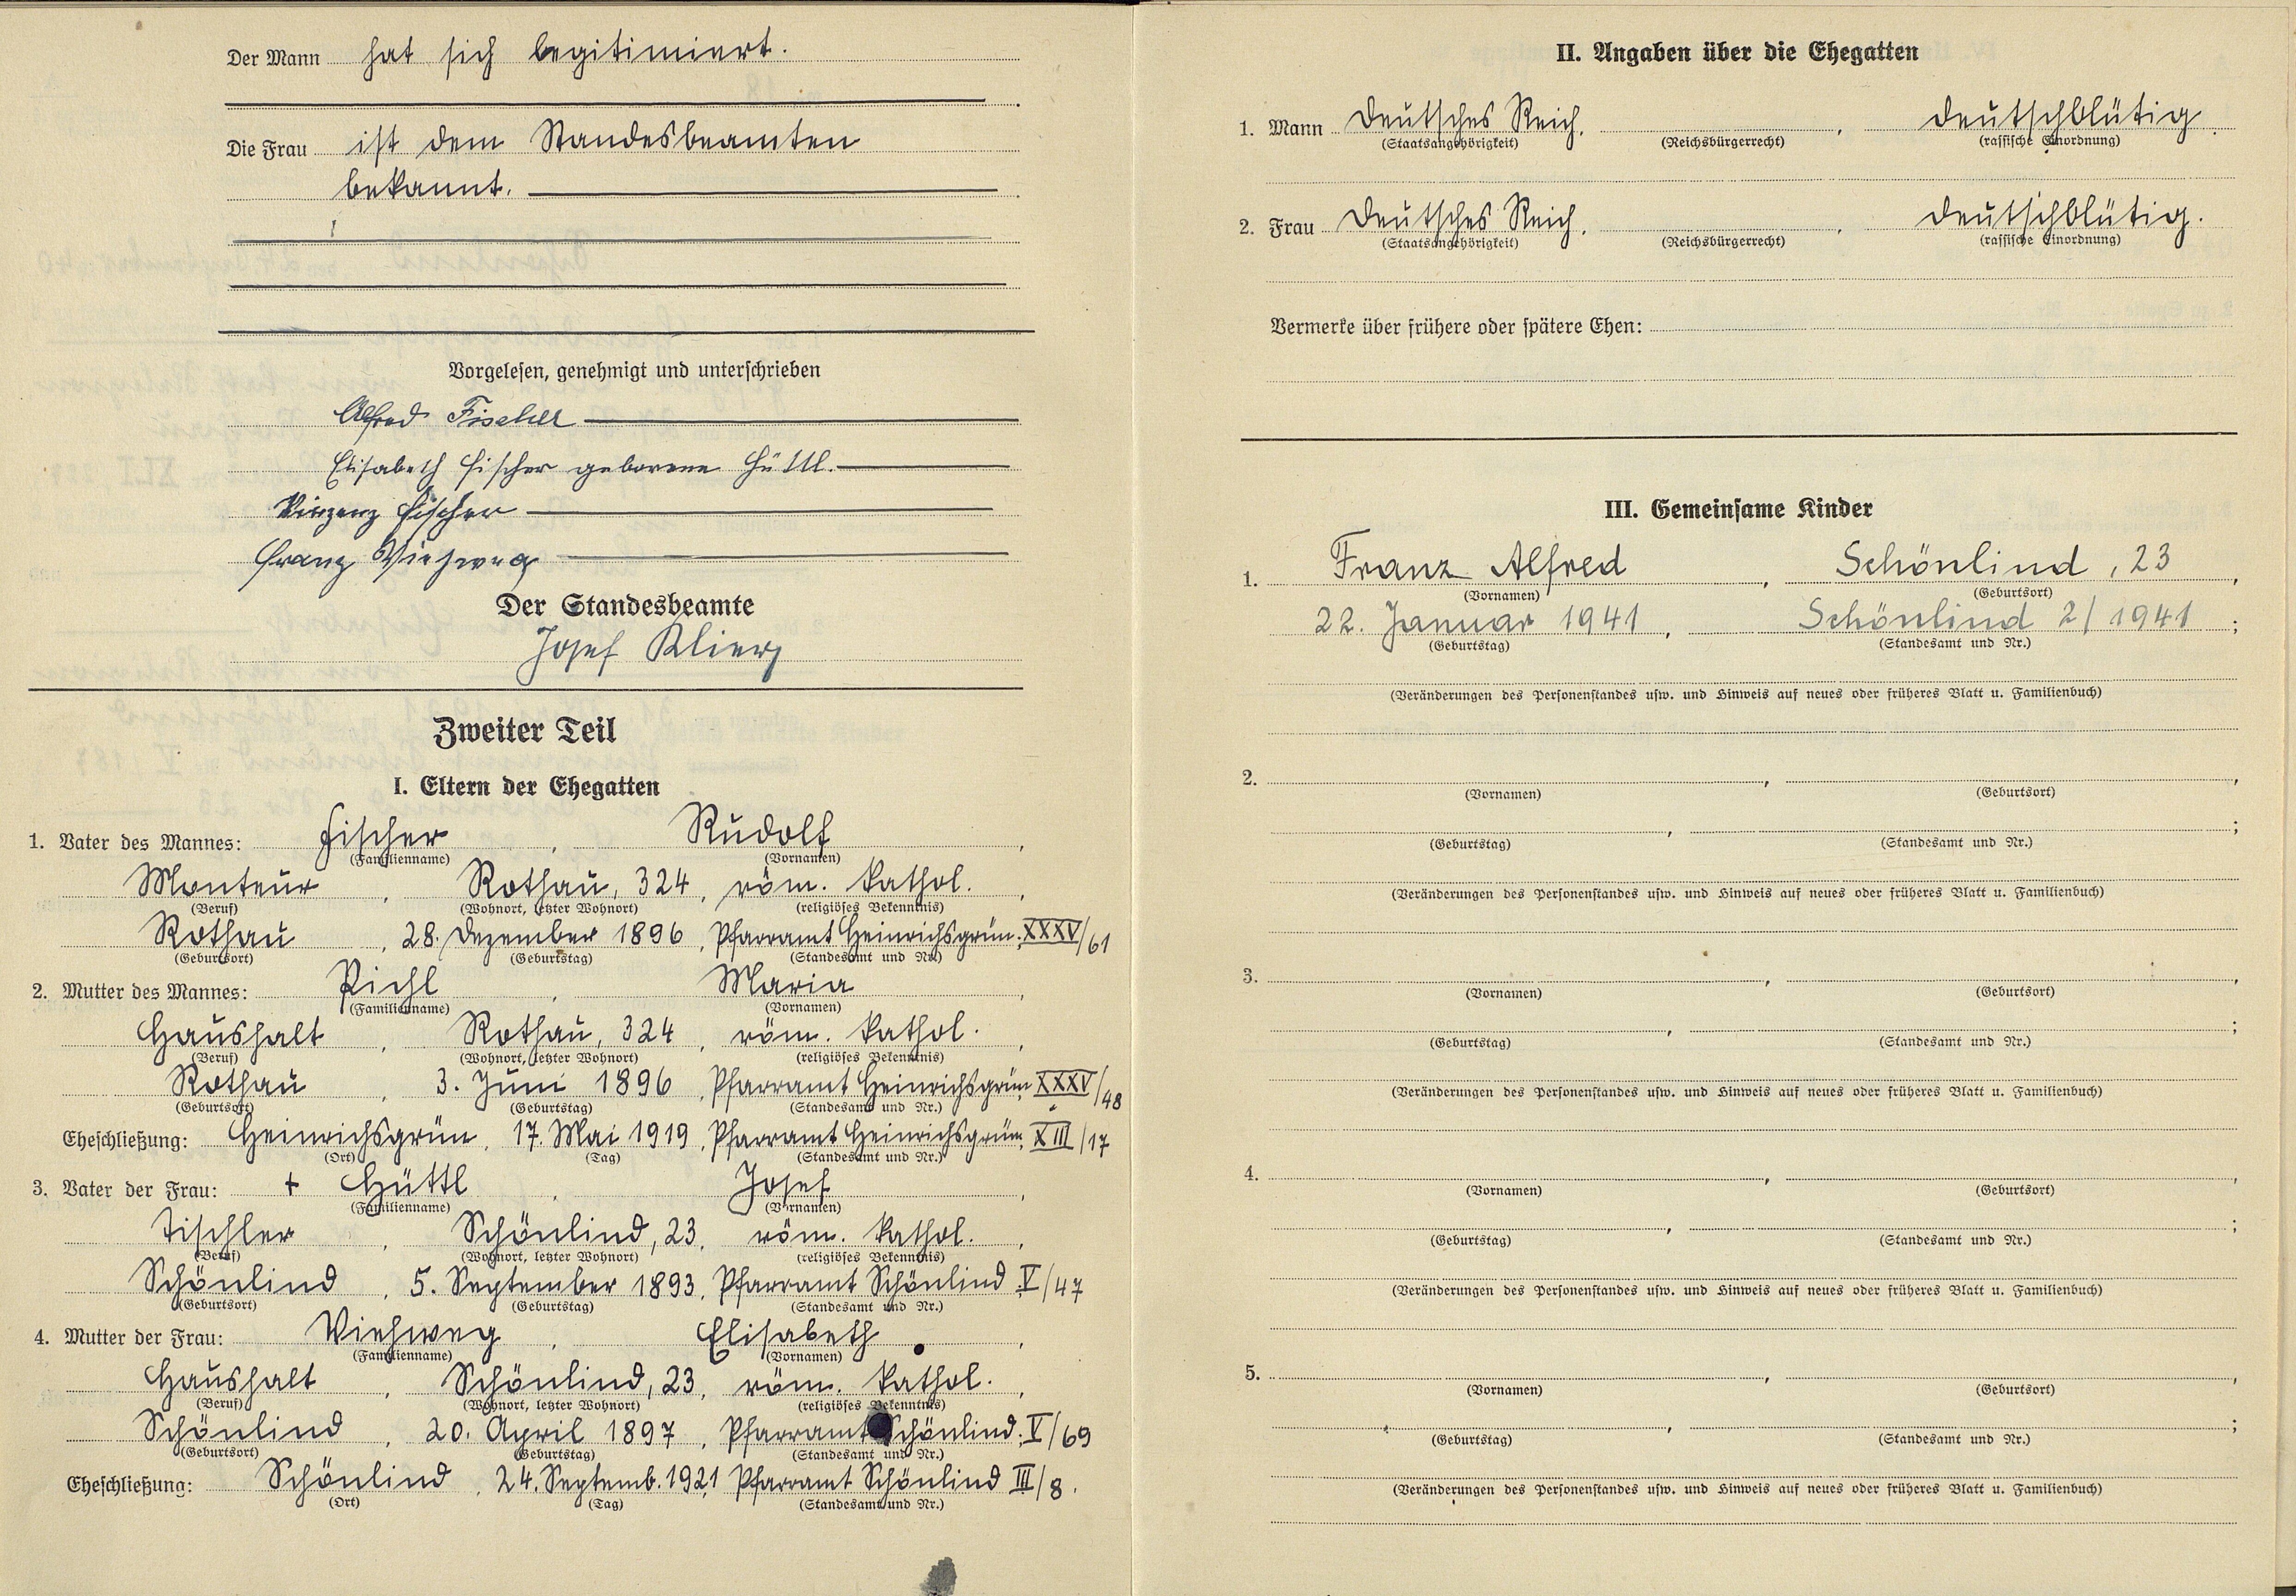 Der Mann hat sich legitimiert.
Die Frau ist dem Standesbeamten
bekannt.
Vorgelesen, genehmigt und unterschrieben
Alfred Fischer
Elisabeth Fischer geborene Hüttl.
Vinzenz Fischer
Franz Viehweg
Der Standesbeamte
Josef Klierz
Zweiter Teil
I. Eltern der Ehegatten
1. Vater des Mannes: Fischer, Rudolf,
(Familienname) (Vornamen)
Monteur, Rothau, 324, röm. kathol.,
(Beruf) (Wohnort, letzter Wohnort) (religiöses Bekenntnis)
Rothau, 28. Dezember 1896, Pfarramt Heinrichsgrün, XXXV/61
(Geburtsort) (Geburtstag) (Standesamt und Nr.)
2. Mutter des Mannes: Pichl, Maria,
(Familienname) (Vornamen)
Haushalt, Rothau, 324, röm. kathol.,
(Beruf) (Wohnort, letzter Wohnort) (religiöses Bekenntnis)
Rothau, 3. Juni 1896, Pfarramt Heinrichsgrün XXXV/48
(Geburtsort) (Geburtstag) (Standesamt und Nr.)
Eheschließung: Heinrichsgrün, 17. Mai 1919, Pfarramt Heinrichsgrün, XIII/17
(Ort) (Tag) (Standesamt und Nr.)
3. Vater der Frau: + Hüttl, Josef,
(Familienname) (Vornamen)
Tischler, Schönlind, 23, röm. kathol.,
(Beruf) (Wohnort, letzter Wohnort) (religiöses Bekenntnis)
Schönlind, 5. September 1893, Pfarramt Schönlind V/47
(Geburtsort) (Geburtstag) (Standesamt und Nr.)
4. Mutter der Frau: Viehweg, Elisabeth,
(Familienname) (Vornamen)
Haushalt, Schönlind, 23, röm. kathol.,
(Beruf) (Wohnort, letzter Wohnort) (religiöses Bekenntnis)
Schönlind, 20. April 1897, Pfarramt Schönlind V/69
(Geburtsort) (Geburtstag) (Standesamt und Nr.)
Eheschließung: Schönlind, 24. Septemb. 1921, Pfarramt Schönlind III/8.
(Ort) (Tag) (Standesamt und Nr.)
II. Angaben über die Ehegatten
1. Mann Deutsches Reich, , deutschblütig.
(Staatsangehörigkeit) (Reichsbürgerrecht) (rassische Einordnung)
2. Frau Deutsches Reich, , deutschblütig.
(Staatsangehörigkeit) (Reichsbürgerrecht) (rassische Einordnung)
Vermerke über frühere oder spätere Ehen:
III. Gemeinsame Kinder
1. Franz Alfred, Schönlind, 23,
(Vornamen) (Geburtsort)
22. Januar 1941, Schönlind 2/1941;
(Geburtstag) (Standesamt und Nr.)
(Veränderungen des Personenstandes usw. und Hinweis auf neues oder früheres Blatt u. Familienbuch)
2. , ,
(Vornamen) (Geburtsort)
, ;
(Geburtstag) (Standesamt und Nr.)
(Veränderungen des Personenstandes usw. und Hinweis auf neues oder früheres Blatt u. Familienbuch)
3. , ,
(Vornamen) (Geburtsort)
, ;
(Geburtstag) (Standesamt und Nr.)
(Veränderungen des Personenstandes usw. und Hinweis auf neues oder früheres Blatt u. Familienbuch)
4. , ,
(Vornamen) (Geburtsort)
, ;
(Geburtstag) (Standesamt und Nr.)
(Veränderungen des Personenstandes usw. und Hinweis auf neues oder früheres Blatt u. Familienbuch)
5. , ,
(Vornamen) (Geburtsort)
, ;
(Geburtstag) (Standesamt und Nr.)
(Veränderungen des Personenstandes usw. und Hinweis auf neues oder früheres Blatt u. Familienbuch)